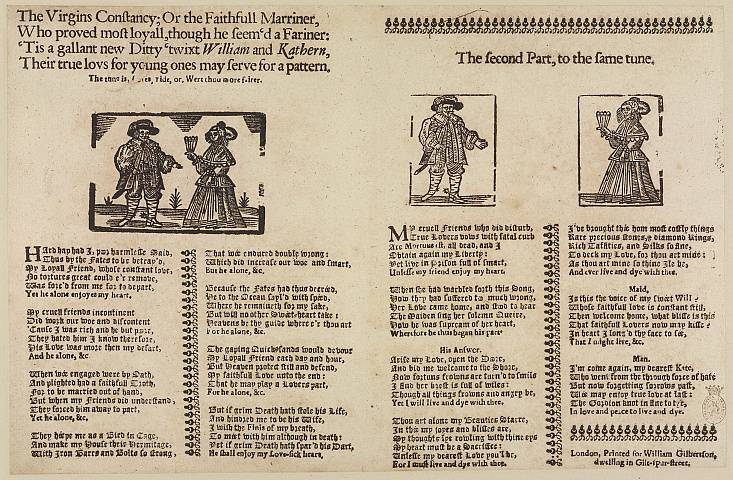 The Virgins Constancy; Or the Faithfull Marriner,
Who proved most loyall, though he seem'd a Fariner:
'Tis a gallant new Ditty 'twixt William and Kathern,
Their true lovs for young ones may serve for a pattern.
The tune is, ride, or, Wert thou more fairer.
HArd hap had I, poor harmlesse Maid,
Thus by the Fates to be betray'd,
My Loyall Friend, whose constant love,
No tortures great could e're remove,
Was forc'd from me for to depart,
Yet he alone enjoyes my heart.
My cruell friends incontinent
Did work our woe and discontent
'Cause I was rich and he but poor,
They hate him I know therefore,
His Love was more then my desart,
And he alone, &c.
When we engaged were by Oath,
And plighted had a faithfull Troth,
For to be married out of hand,
But when my Friends did understand,
They forced him away to part,
Yet he alone, &c.
They keepe me as a Bird in Cage,
And make my House their Hermitage,
With Iron Barrs and Bolts so strong,
That we endured double wrong:
Which did increase our woe and smart,
But he alone, &c.
Because the Fates had thus decreed,
He to the Ocean sayl'd with speed,
Where he remaineth for my sake,
But will no other Sweet-heart take:
Heavens be thy guide where e're thou art
For he alone, &c.
The gaping Quicksands would devour
My Loyall Friend each day and hour,
But Heaven protect still and defend,
My faithfull Love unto the end:
That he may play a Lovers part,
For he alone, &c.
But if grim Death hath stole his Life,
And hindred me to be his Wife,
I wish the Fleis of my breath,
To meet with him although in death:
Yet if grim Death hath spar'd his Dart,
He shall enjoy my Love-sick heart.
The second Part, to the same tune.
MY cruell Friends who did disturb,
True Lovers vows with fatal curb
Are all dead, and I
Obtain again my Liberty:
Yet live in Prison full of smart,
Unlesse my friend enjoy my heart.
When she had warbled forth this Song,
How they had suffered so much wrong,
Her Love came home, and stood to hear
The Maiden sing her solemn Queire,
How he was supream of her heart,
Wherefore he thus began his part
His Answer.
Arise my Love, open the Doore,
And bid me welcome to the Shore,
Now fortuns frownes are turn'd to smils
I find her brest is full of wiles:
Though all things frowns and angry be,
Yet I will live and dye with thee.
Thou art alone my Beauties Starre,
In thee my joyes and blisses are
My thoughts for rowling with thine eys
My heart must be a Sacrifice:
Unlesse my dearest Love you'l be,
For I must live and dye with thee.
I've brought thee hom most costly things
Rare precious Stones, & diamond Rings,
Rich Taffaties, and Silks so fine,
To deck my Love, for thou art mine:
As thou art mine so thine Ile be,
And ever live and dye with thee.
Maid,
Is this the voice of my sweet Will?
Whose faithfull love is constant still,
Then welcome home, what blisse is this
That faithfull Lovers now may kisse?
In heart I long thy face to see,
That I might live, &c.
Man.
I'm come again, my dearest Kate,
Who went from thee through force of hate
But now forgetting sorrows past,
We may enjoy true love at last:
The Gordion knot in fine is tyes,
In love and peace to live and dye.
London, Printed for William Gilbertson,
dwelling in Gilt-spur-street.